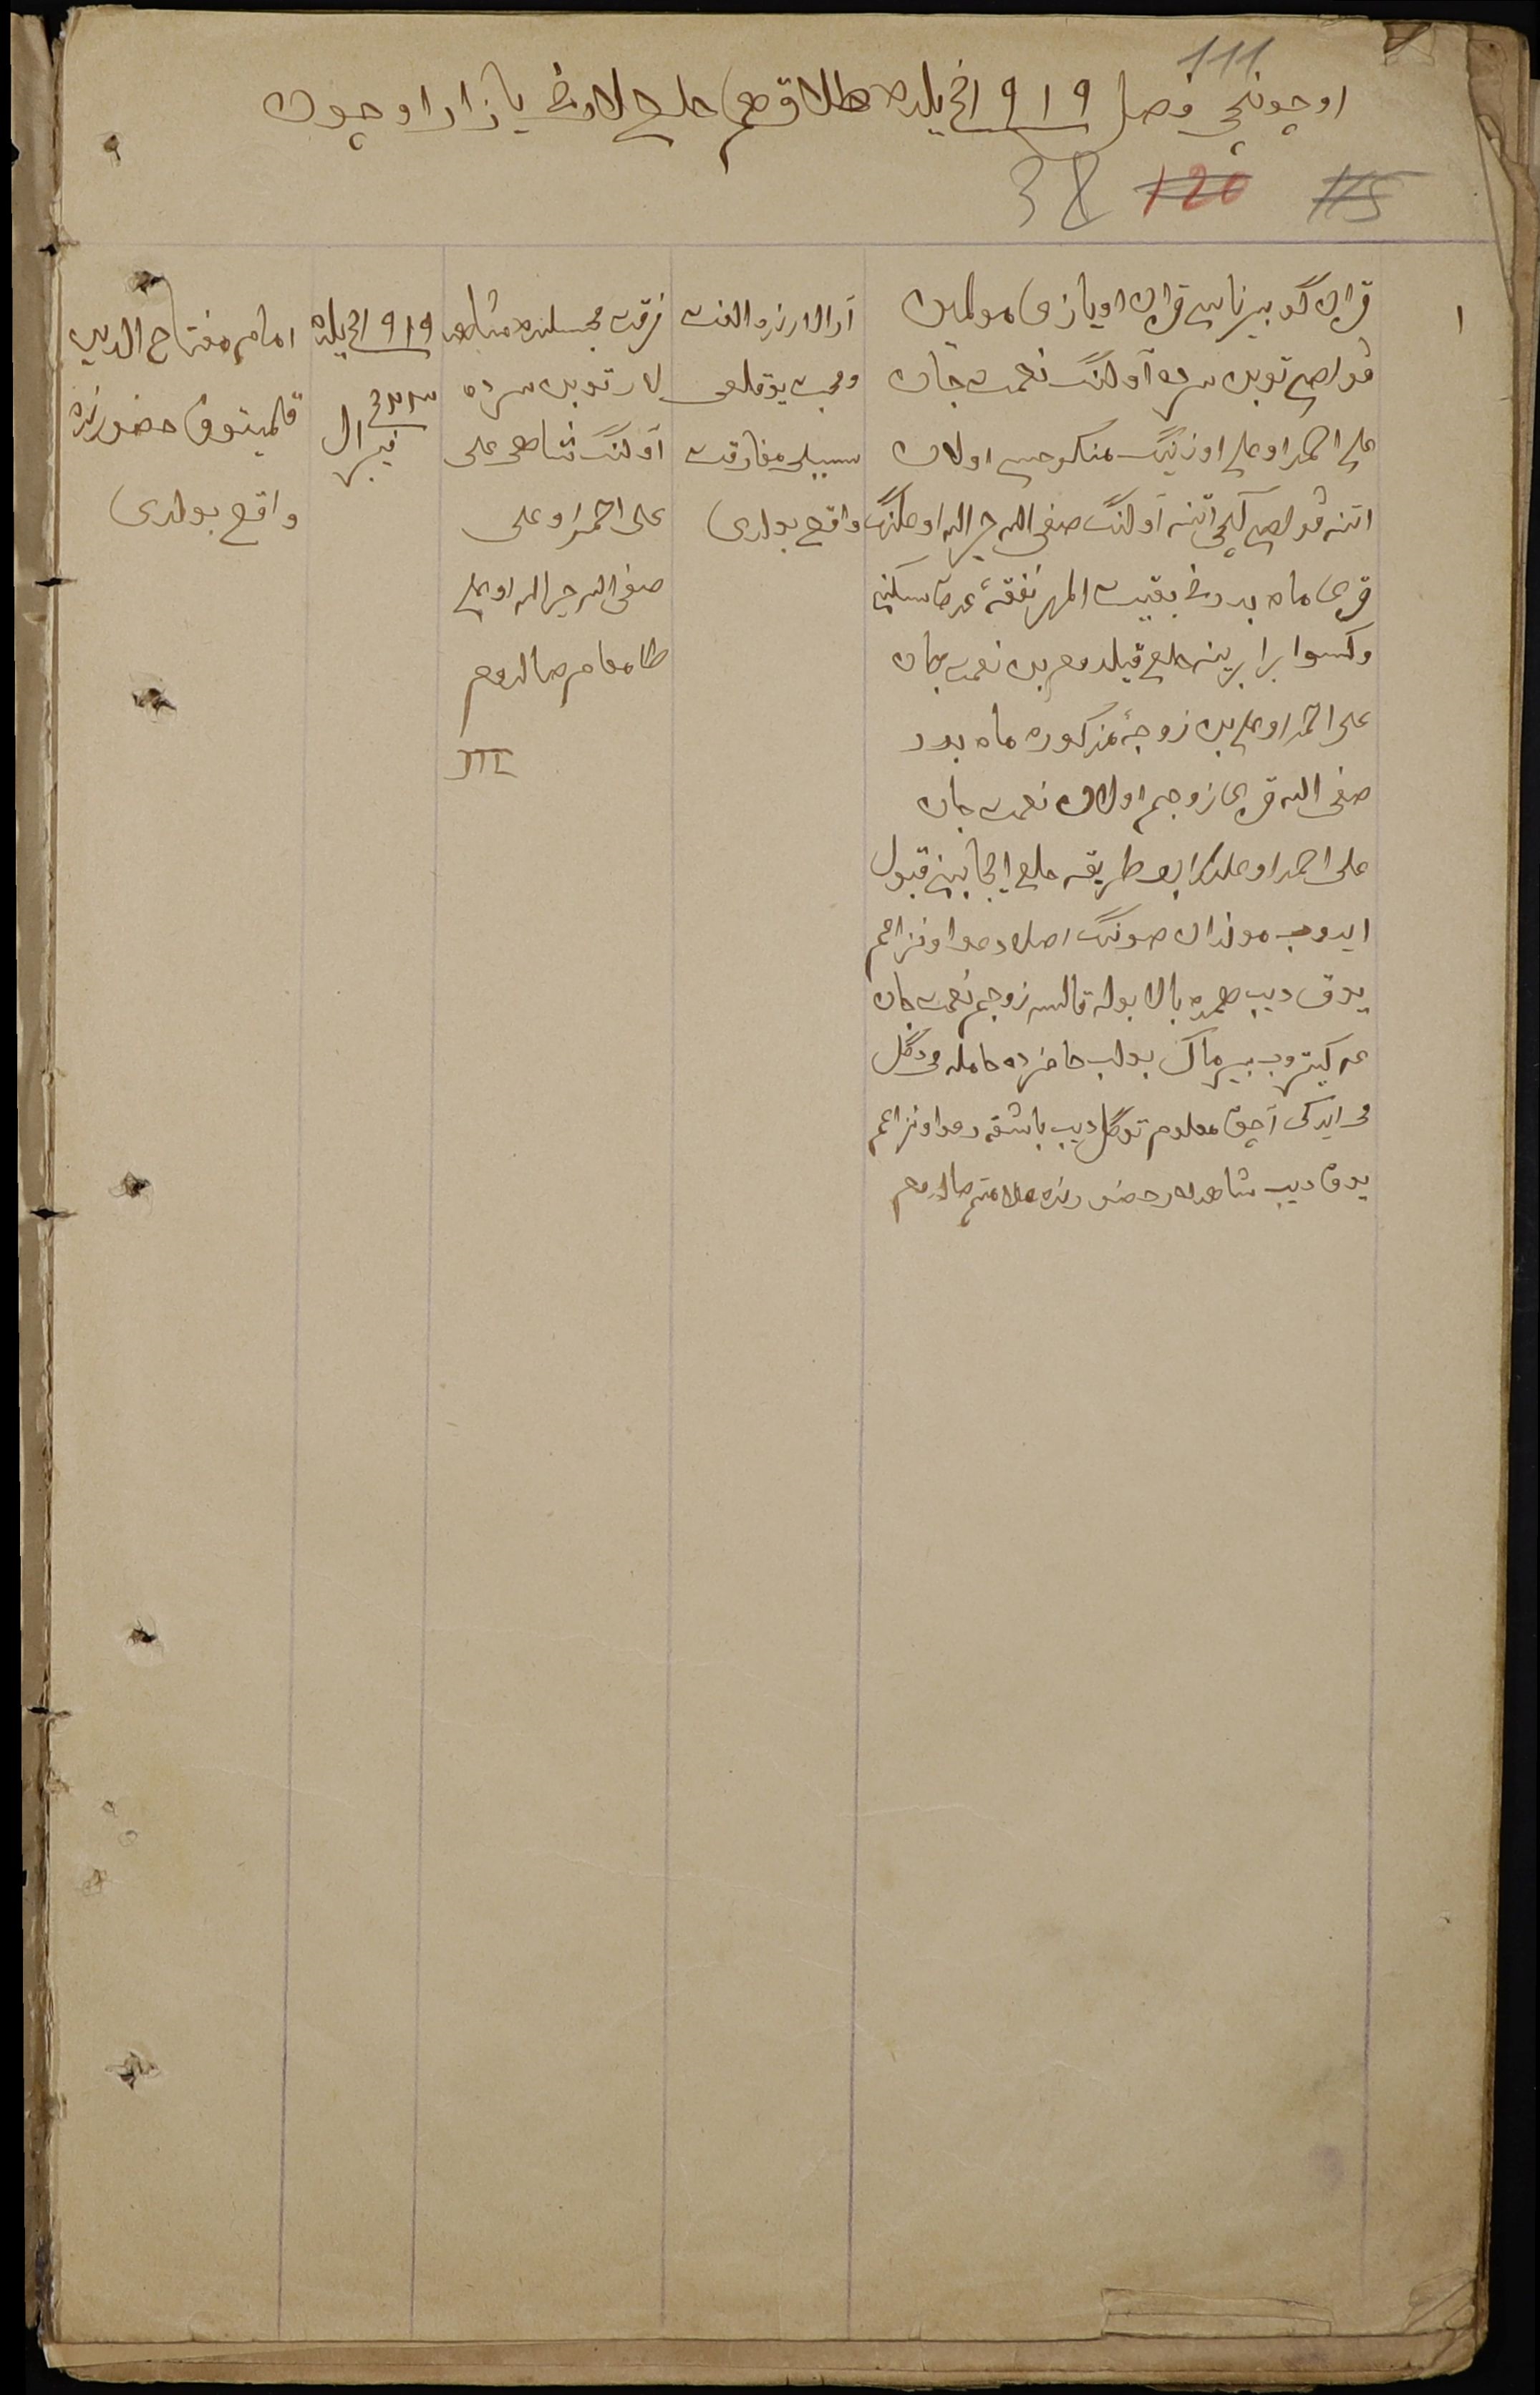 111
اوچونچی فصل ١٩١٩ نچی یلده طلاق هم خلع لارنی یازار اوچون
38 120 115
١
قزان گوبیرناسی قزان اویازی مولمین
فولاصی توبن سرده آولنڭ نعمت جان
علی احمد اوغلی اوزینڭ منکوحه‌سی اولان
اتنه فولاصی کچی اتنه آولنڭ صفی الله خیر الله اوغلینڭ
قزی ماه بدرنی بقیت المهر نفقهٔ عدة سکنی
وکسوا برابرینه خلع قیلدم من نعمت جان
علی احمد اوغلی بن زوجهٔ مذکوره ماه بدر
صفی الله قزی زوجم اولان نعمت جان
علی احمد اوغلندان بو طریقه خلع ایجابینی قبول
ایدوب موندان صونڭ اصلا دعوا ونزاعم
یوق دیب همده بالا بوله قالسه زوجم نعمت جان
غه کیتروب بیرماک بولب حاضرده حامله می توگل
می ایدکی آچق معلوم توگل دیب باشقه دعوا ونزاعم
یوق دیب شاهدلر حضورنده علامتم صالدم
آرالارنده الفت
ومحبت یوقلغی
سببلی مفارقت
واقع بولدی
فرقت مجلسنده شاهد
لار توبن سرده
آولنڭ شاهی علی
علی احمد اوغلی
صفی الله خیر الله اوغلی
طامغام صالدم
III
١٩١٩ نچی یلده
٢٣ نچی
فیرال
امام مفتاح الدین
قلمیتوف حضورنده
واقع بولدی